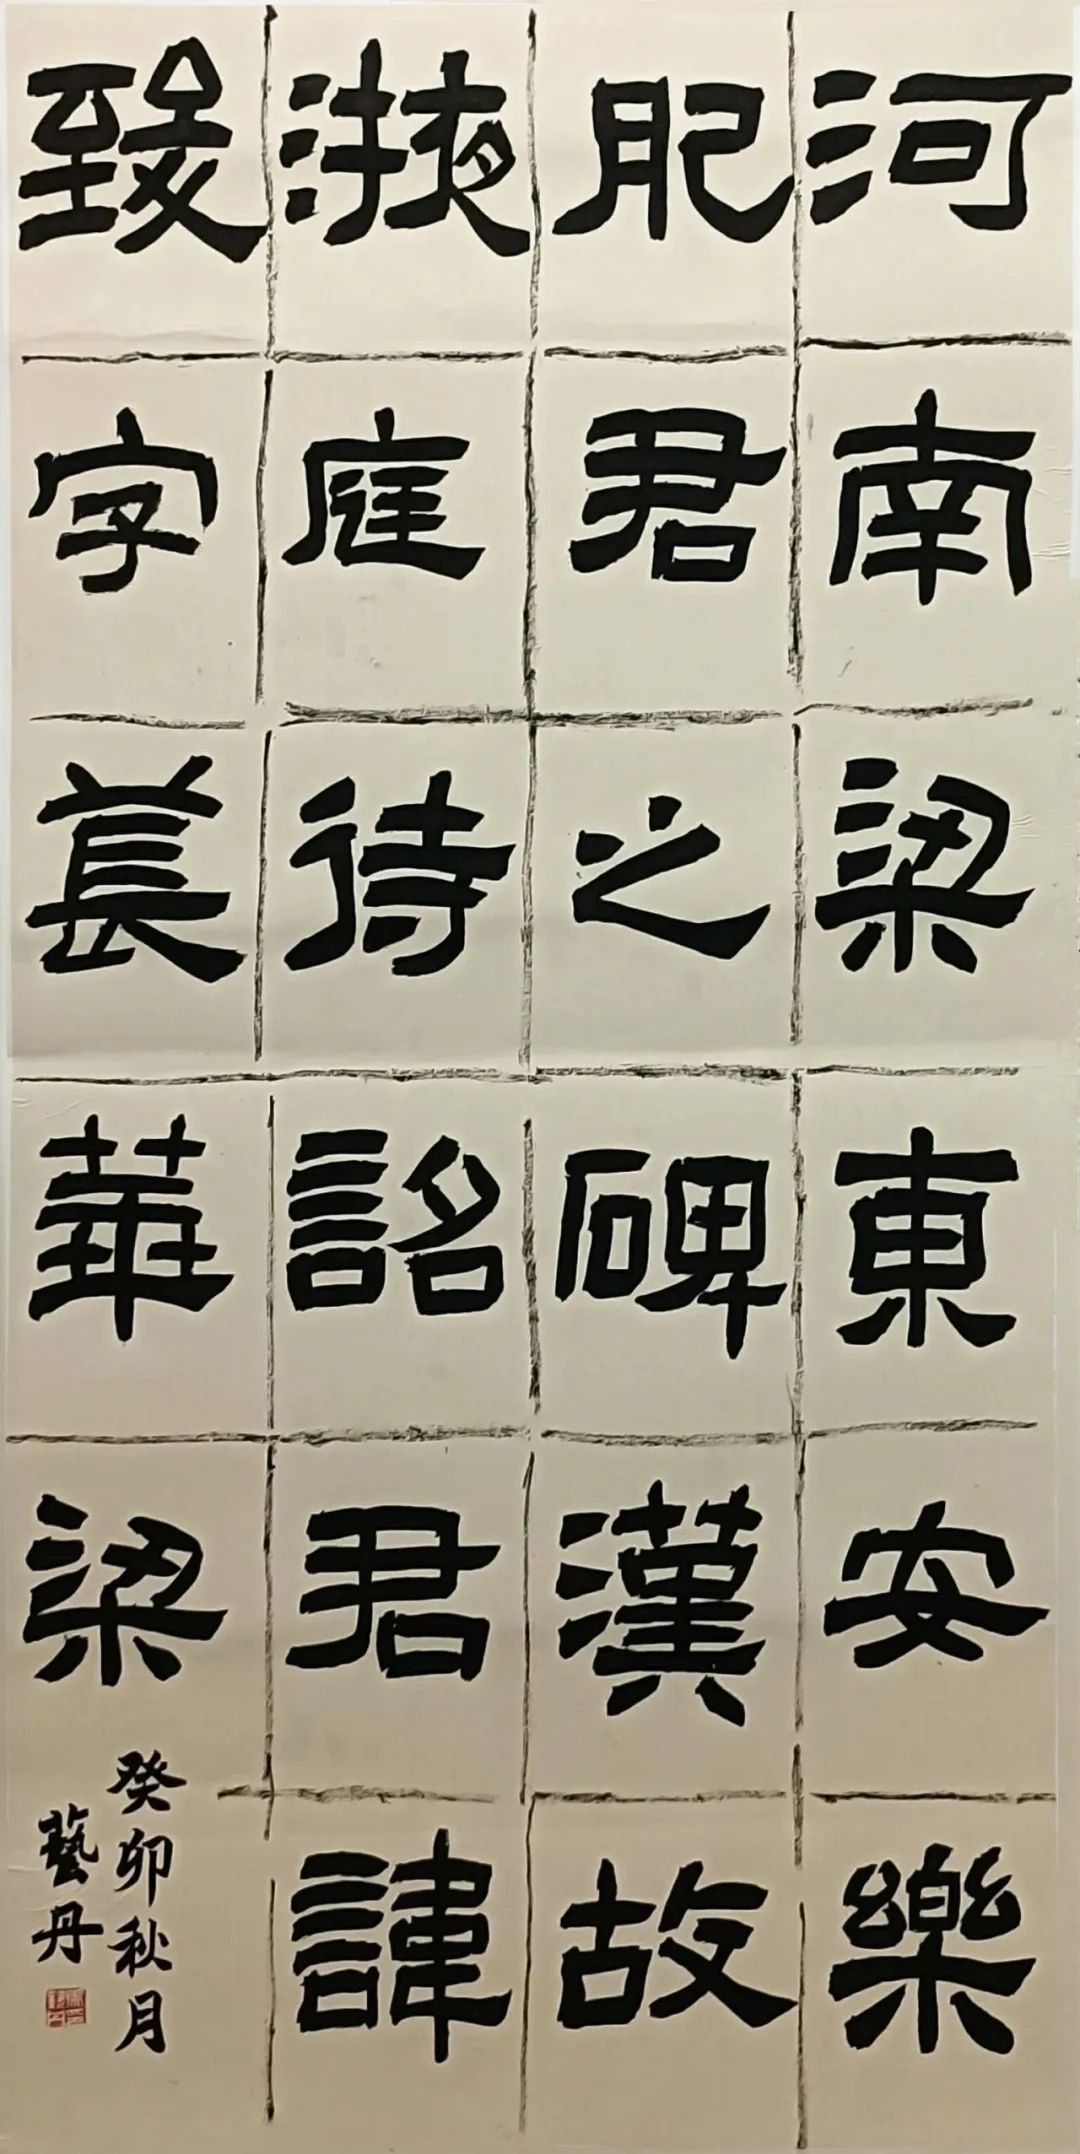 河南梁東安樂
肥君之碑漢故
掖庭待詔君諱
致字萇華梁
癸卯秋月
藝丹